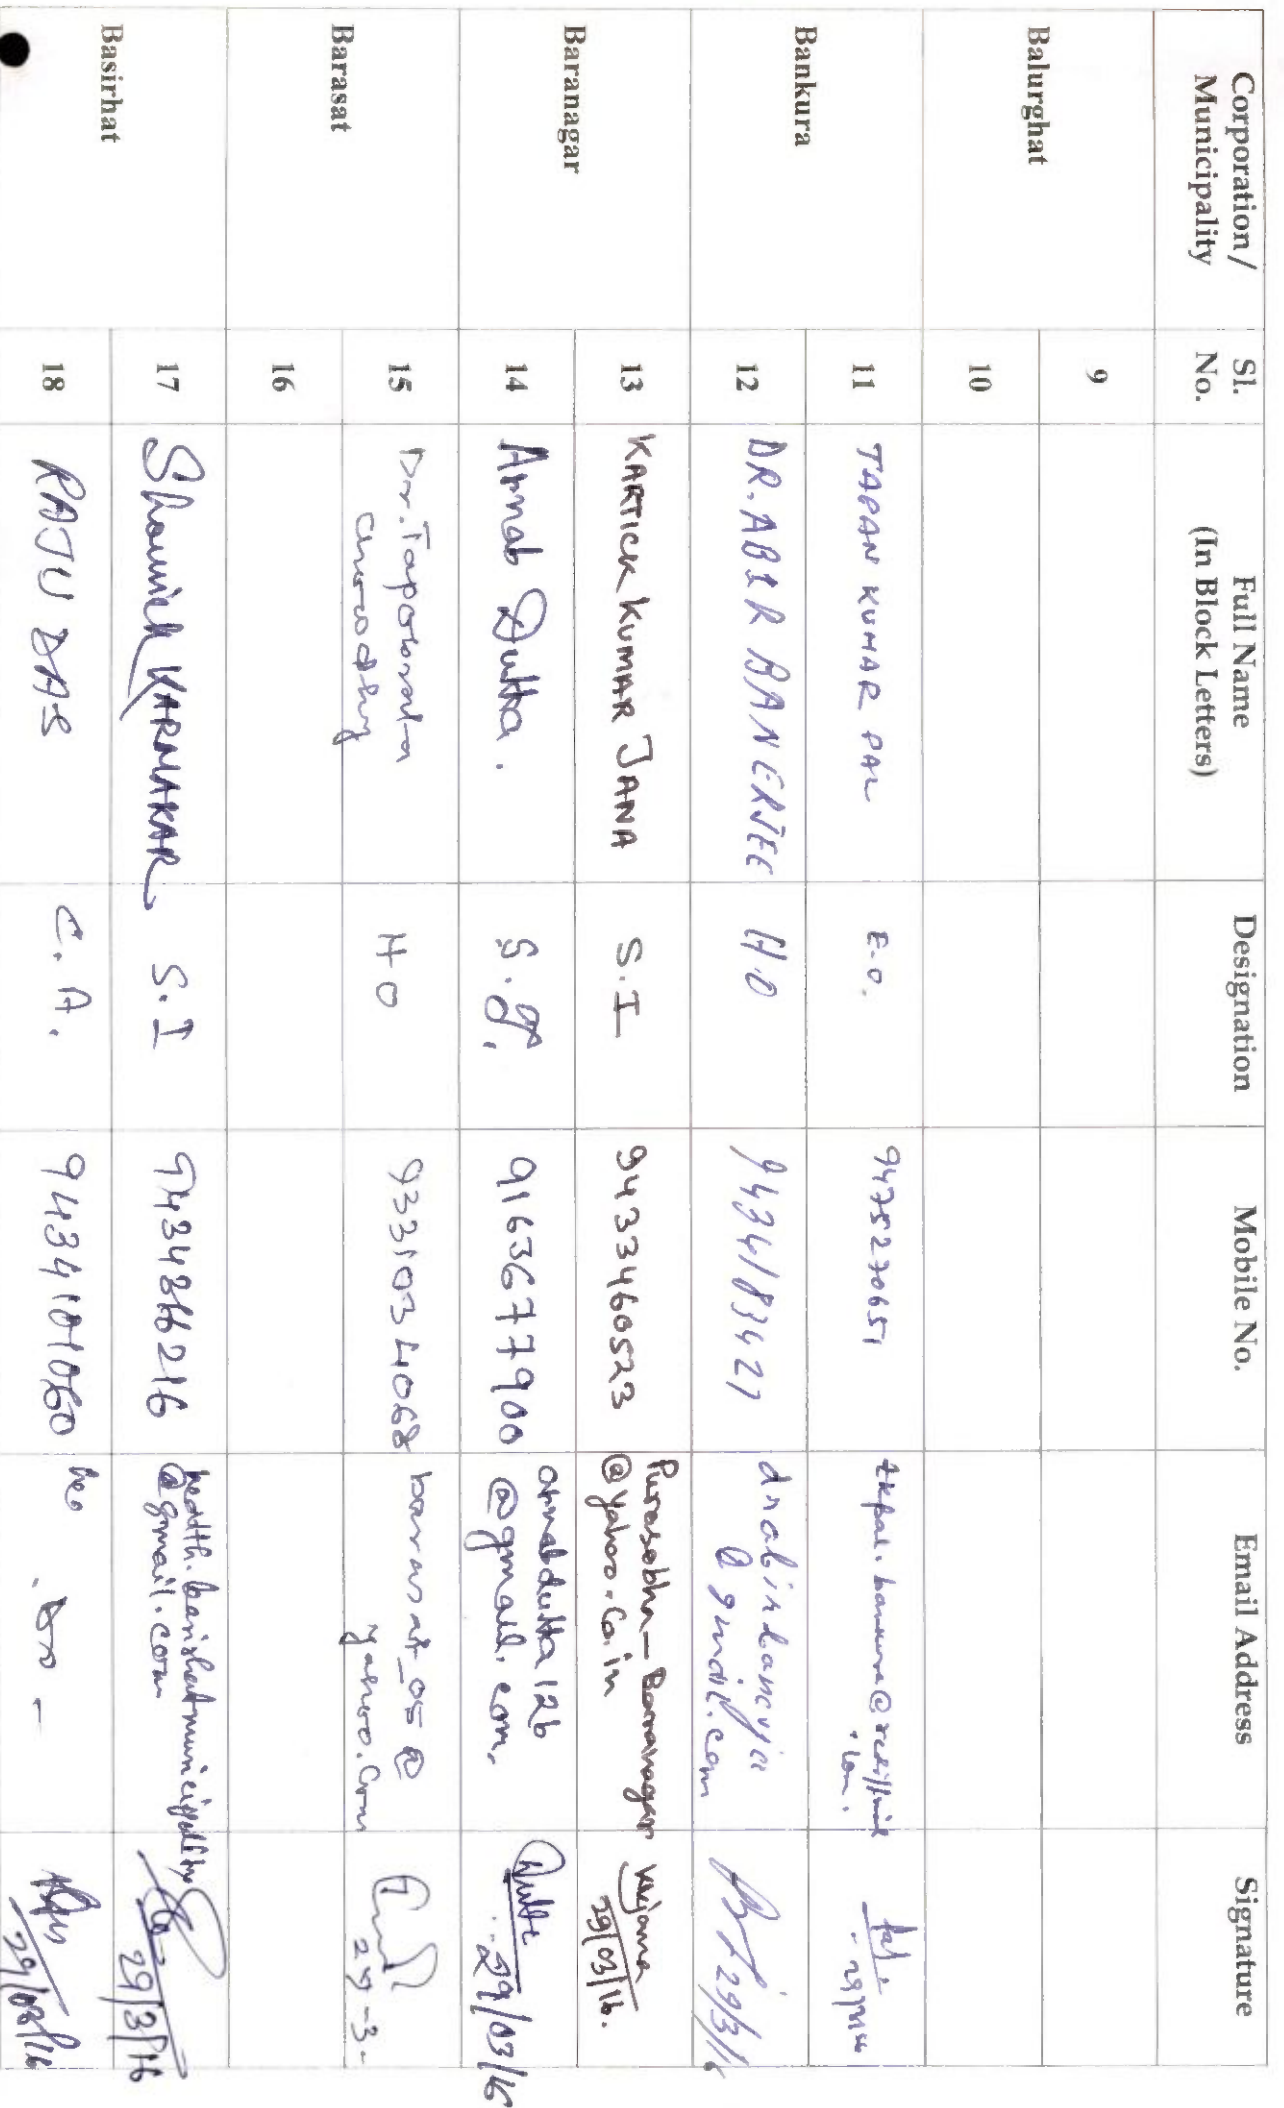 Corporation/
Municipality
Sl.
No.
Full Name
(In Block Letters)
Designation
Mobile No.
Email Address
Signature
Balurghat
9
10
Bankura
11
TAPAN KUMAR PAL
E.O.
9475270651
12
DR. ABIR BANERJEE
HO
9434183427
@gmail.com
29/3/16
Baranagar
13
KARTICK KUMAR JANA
S.I
9433460523
Purasabha-Baranagar
@yahoo.co.in
kkjana
29/03/16.
14
Arnab Dutta.
S.I.
9163677900
arnabdutta126
@gmail.com.
Dutta
29/03/16
Barasat
15
Dr. Tapobrata
Chowdhury
HO
9331034068
barasat_05@
yahoo.com
29-3-
16
Basirhat
17
Shouvick KARMAKAR
S.I
9434866216
health.basirhatmunicipality
@gmail.com
29/3/16
18
RAJU DAS
C.A.
29/03/16